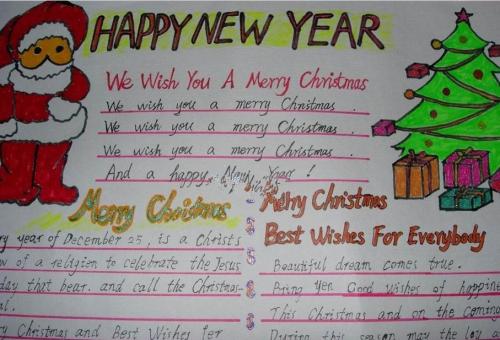 HAPPY NEW YEAR
We Wish You A Merry Christmas
We wish you a merry Christmas.
We wish you a merry Christmas.
We wish you a merry Christmas.
And a happy New Year!
Merry Christmas
year of December 25, is a Christ
of a religion to celebrate the Jesus
day that bear. and call the Christmas
Christmas and Best Wishes for
Merry Christmas
Best Wishes For Everybody
Beautiful dream comes true.
Bring Yen Good Wishes of happin
This Christmas and on the coming
During this season may the